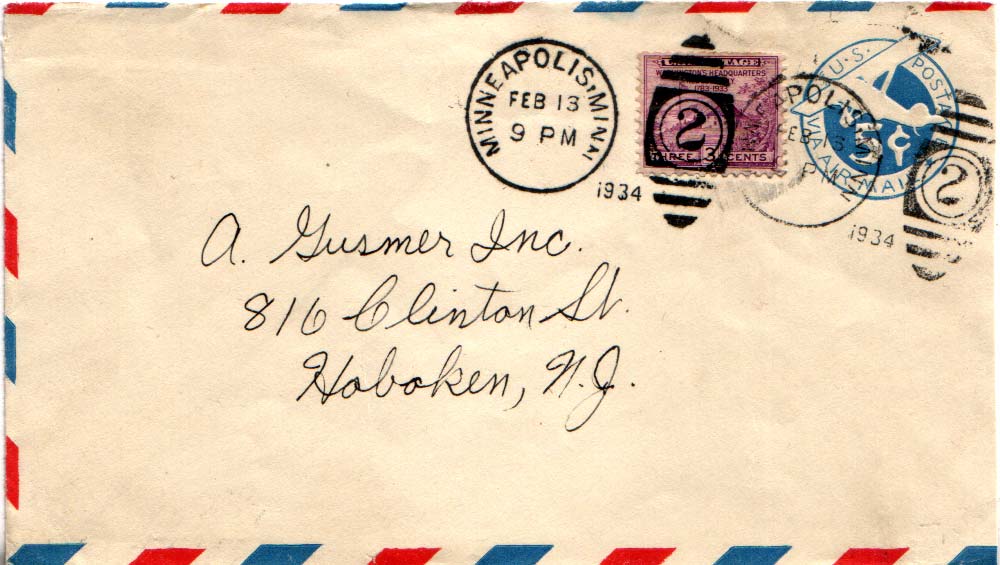 MINNEAPOLIS, MINN.
FEB 13
9 PM
1934
WASHINGTON'S HEADQUARTERS
1783-1933
THREE 3 CENTS
2
U.S. POSTAGE
VIA AIR MAIL
5¢
FEB 13
PM
1934
2
A. Gusmer Inc.
816 Clinton St.
Hoboken, N.J.